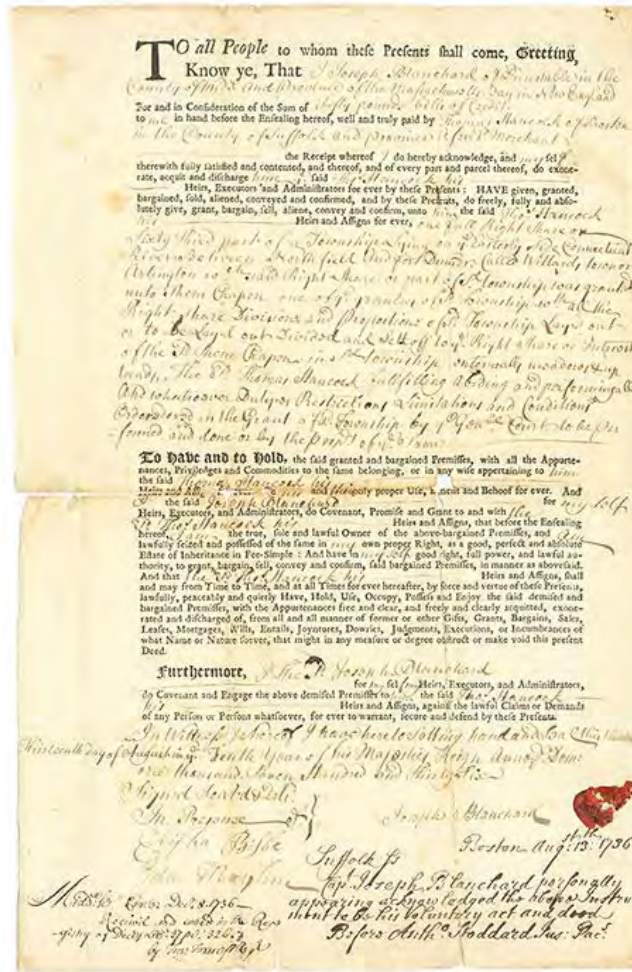 TO all People to whom these Presents shall come, Greeting,
Know ye, That I Joseph Blanchard of Dunstable in the
County of and Province of the Massachusetts Bay in New England
For and in Consideration of the Sum of fifty pounds bills of Credit
to me in hand before the Ensealing hereof, well and truly paid by Thomas Hancock of Boston
in the County of Suffolk and province aforesd Merchant
the Receipt whereof I do hereby acknowledge, and my self
therewith fully satisfied and contented, and thereof, and of every part and parcel thereof, do exone-
rate, acquit and discharge him the said Thos Hancock his
Heirs, Executors and Administrators for ever by these Presents: HAVE given, granted,
bargained, sold, aliened, conveyed and confirmed, and by these Presents, do freely, fully and abso-
lutely give, grant, bargain, sell, aliene, convey and confirm, unto him the said Thos Hancock
his Heirs and Assigns for ever, one full Right Share or
Sixty third part of a Township Lying on ye Easterly Side Connecticut
River between Northfield and fort Dummer Called Willards town or
Arlington said Right Share or part of sd Township was granted
unto Chapon one of ye grantees of sd Township with all the
Right share Divisions and Proportions of sd Township Layd out
or to be Layd out Divided and Sett off to ye Right Share or Interest
of the sd Chapon in sd Township
The sd Thomas Hancock fullfilling Abiding and performing all
And whatsoever Dutys Restrictions Limitations and Conditions
Ordered in the Grant of sd Township by ye Court to be per
formed and done or by the of ye same
To Have and to Hold, the said granted and bargained Premisses, with all the Appurte-
nances, Priviledges and Commodities to the same belonging, or in any wise appertaining to him
the said Thomas Hancock his
Heirs and only proper Use, Benefit and Behoof for ever. And
I the said Joseph Blanchard for my self
Heirs, Executors, and Administrators, do Covenant, Promise and Grant to and with the
sd Thos Hancock his Heirs and Assigns, that before the Ensealing
hereof, I am the true, sole and lawful Owner of the above-bargained Premisses, and am
lawfully seized and possessed of the same in my own proper Right, as a good, perfect and absolute
Estate of Inheritance in Fee-Simple: And have in my self good right, full power, and lawful au-
thority, to grant, bargain, sell, convey and confirm, said bargained Premisses, in manner as abovesaid.
And that the sd Thos Hancock his Heirs and Assigns, shall
and may from Time to Time, and at all Times for ever hereafter, by force and vertue of these Presents,
lawfully, peaceably and quietly Have, Hold, Use, Occupy, Possess and Enjoy the said demised and
bargained Premisses, with the Appurtenances free and clear, and freely and clearly acquitted, exone-
rated and discharged of, from all and all manner of former or other Gifts, Grants, Bargains, Sales,
Leases, Mortgages, Wills, Entails, Joyntures, Dowries, Judgments, Executions, or Incumbrances of
what Name or Nature soever, that might in any measure or degree obstruct or make void this present
Deed.
Furthermore, I the sd Joseph Blanchard
for my self my Heirs, Executors, and Administrators,
do Covenant and Engage the above demised Premisses to him the said Thos Hancock
his Heirs and Assigns, against the lawful Claims or Demands
of any Person or Persons whatsoever, for ever to warrant, secure and defend by these Presents.
In Witness whereof I have hereto sett my hand and Seal this
thirteenth day of August in ye Tenth Year of his Majestys Reign Anno Dom
one thousand Seven Hundred and thirty Six
Signed Sealed & Deld
In Presence of
Joseph Blanchard
Elisha Bisbe
Boston Augst 13th 1736
Suffolk ss
Capt Joseph Blanchard personally
appearing acknowledged the above Instru
ment to be his voluntary act and deed
Before Antho Stoddard Jus: Pacs
Decr 8 1736
Received and entred in the Reg
istry of Deeds